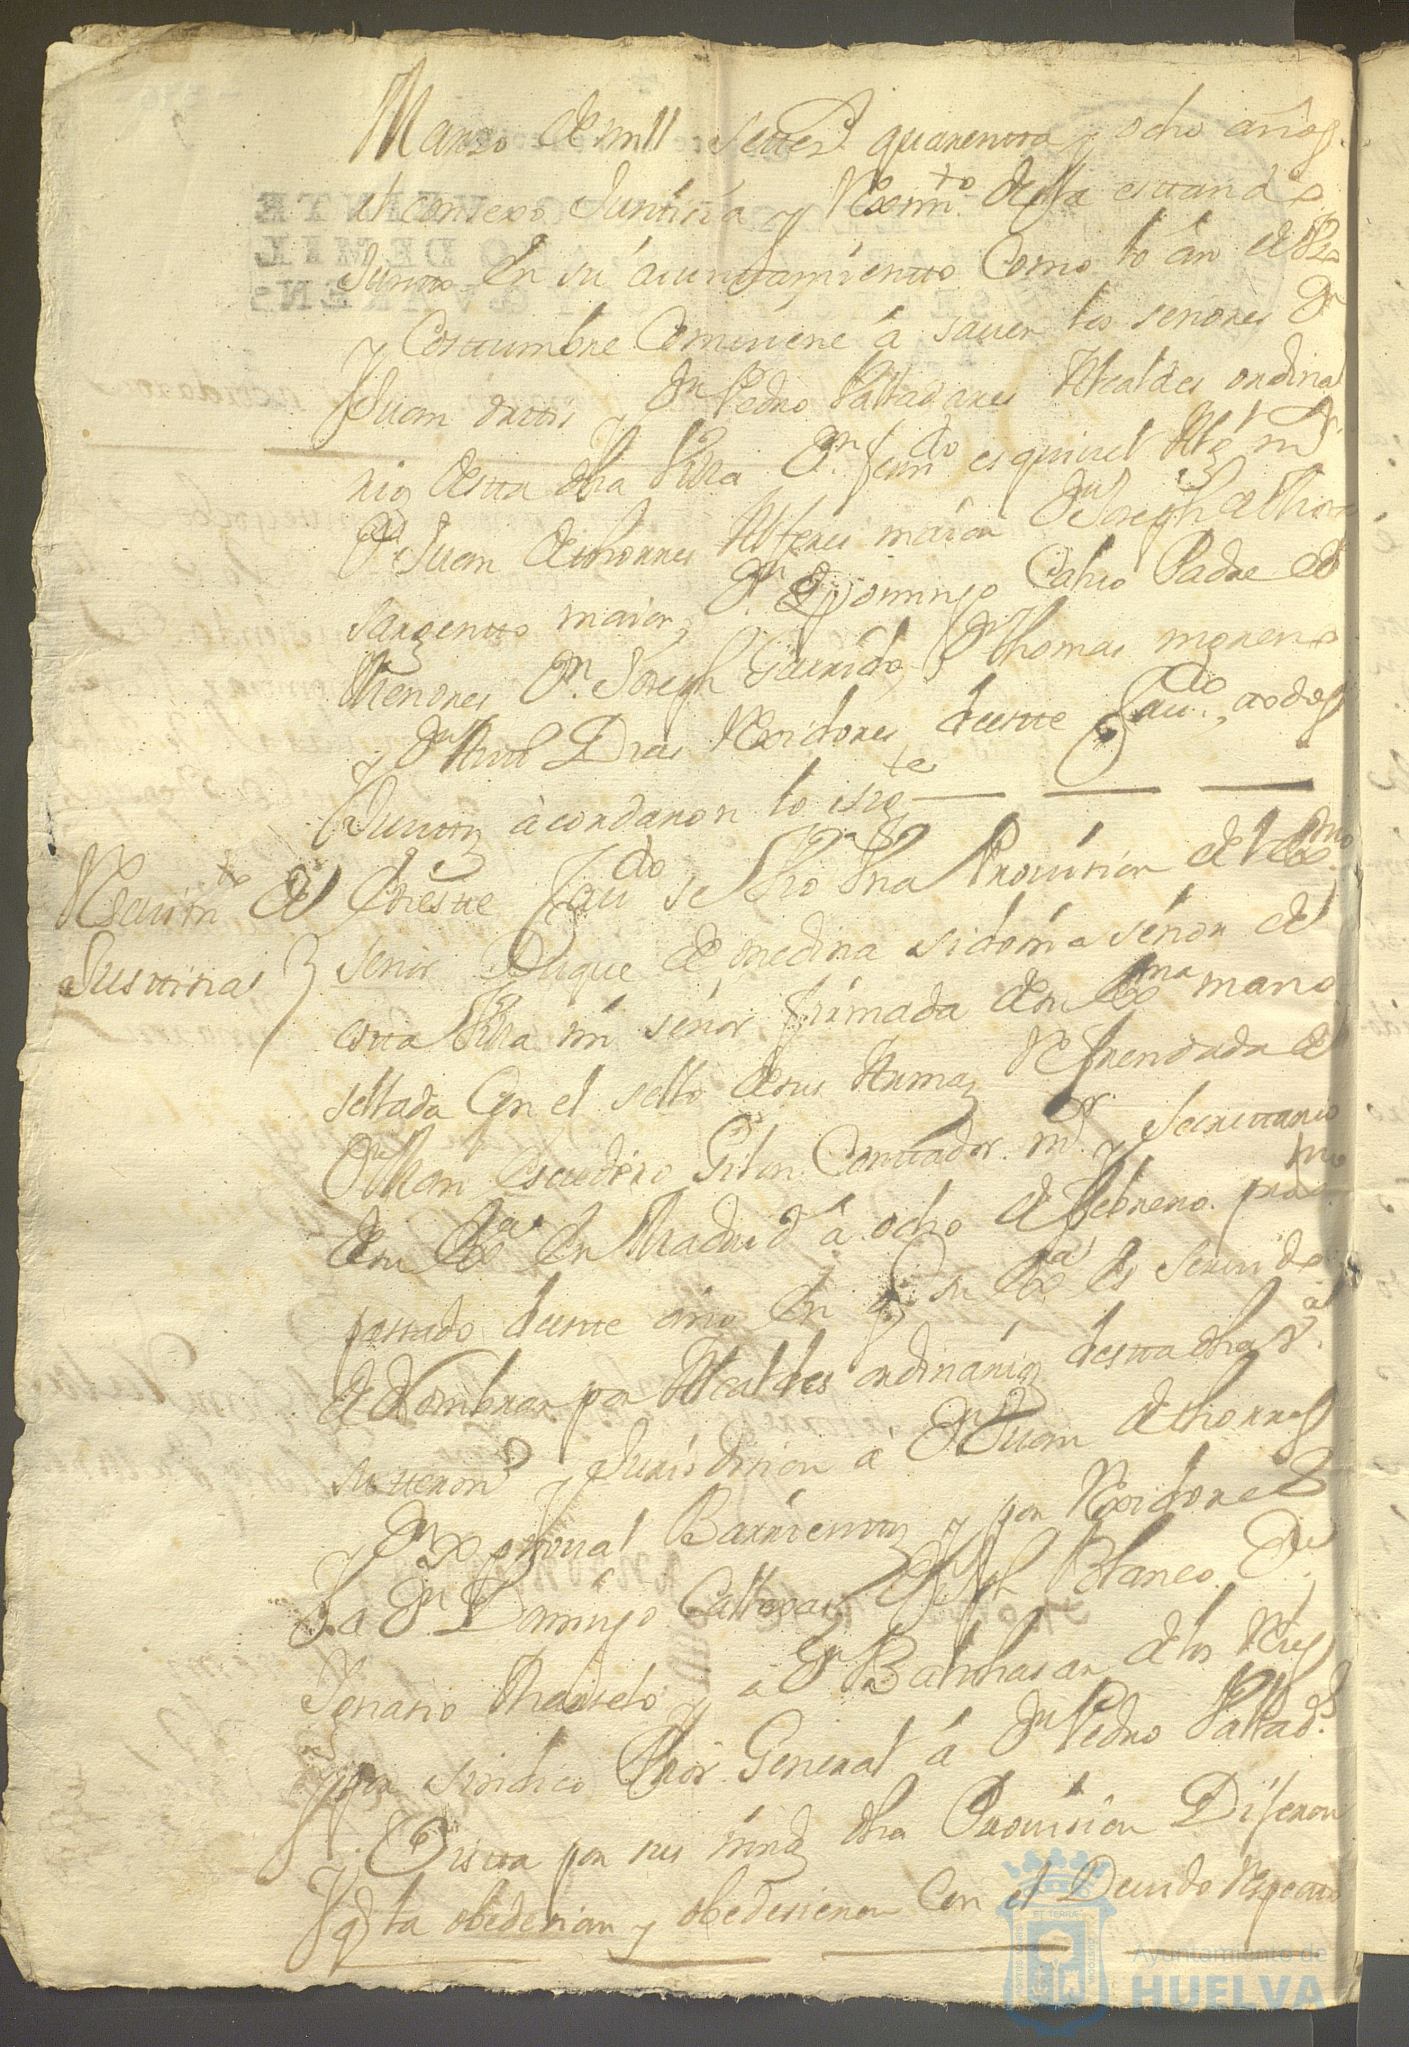 Marzo de mill settez.s quarentta y ocho años
el consexo Justicia y Reximto della esttando
Junttos en su aiunttamientto Como lo an de Uzo
y Costtumbre Combiene a sauer los señores Dn
Juan orttis y Dn Pedro Valladares Alcaldes ordina
rios destta dha Villa Dn ferndo esquiuel Alg.l mr
Dn Juan de thorres Alferes maior Dn Joseph
sargentto maior, Dn Domingo Calvo Padre de
Menores Dn Joseph Garrido, Dn thomas moreno
y Dn Dias Rexidores desste Caudo, ttodos
Junttos acordaron lo sigte
Resiuimto de
Justticias
En estte Caudo se Vio Una Prouision del exmo
señor Duque de medina sidonia señor de
estta Villa mi señor firmada de su exma mano
sellada Con el sello de sus Armas Refrendada de
Dn Man Escudero Gilon Conttador mr y Secrettario
de su exa en Madrid a ocho de febrero proximo
passado desste año en q su exa es seruido
de Nombrar por Alcaldes ordinarios destta dha Va
su ttermo y Jurisdision a Dn Juan de thorres
y Dn Xptoual Barrienttos y por Rexidores
a Dn Domingo Dn Joseph Blanco Dn
Ygnacio y a Dn Balthasar de los Reyes
y por sindico Pror General a Dn Pedro Vallads
Vistta por sus mrds dha Prouision Dijeron
q la obedesian y obedesieron con el Deuido Respectto
Ayuntamiento de
HUELVA